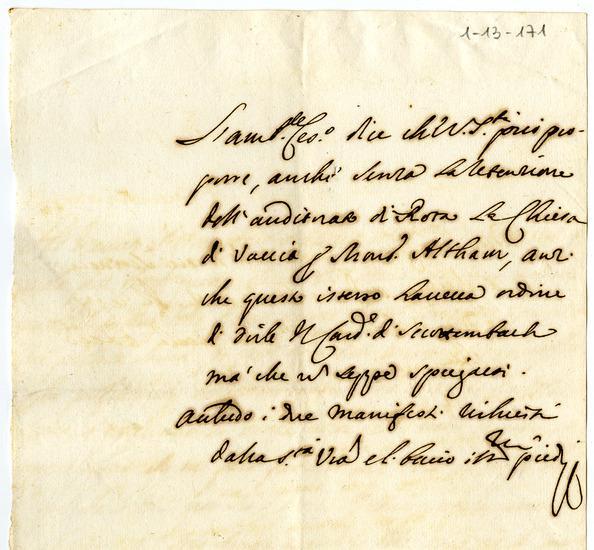 1-13-171
L'amb.re Ces.o dice che V. S.tà può pro-
porre, anche senza la retenzione
dell'auditorato di Rota la Chiesa
di Vaccia p Mons.r Althann, anzi
che questo istesso haveva ordine
di dirle il Card.e di Scrottembach
ma' che non seppe spiegarsi.
Antedo i due manifesti richiesti
dalla S.tà V.ra e le bacio i piedi